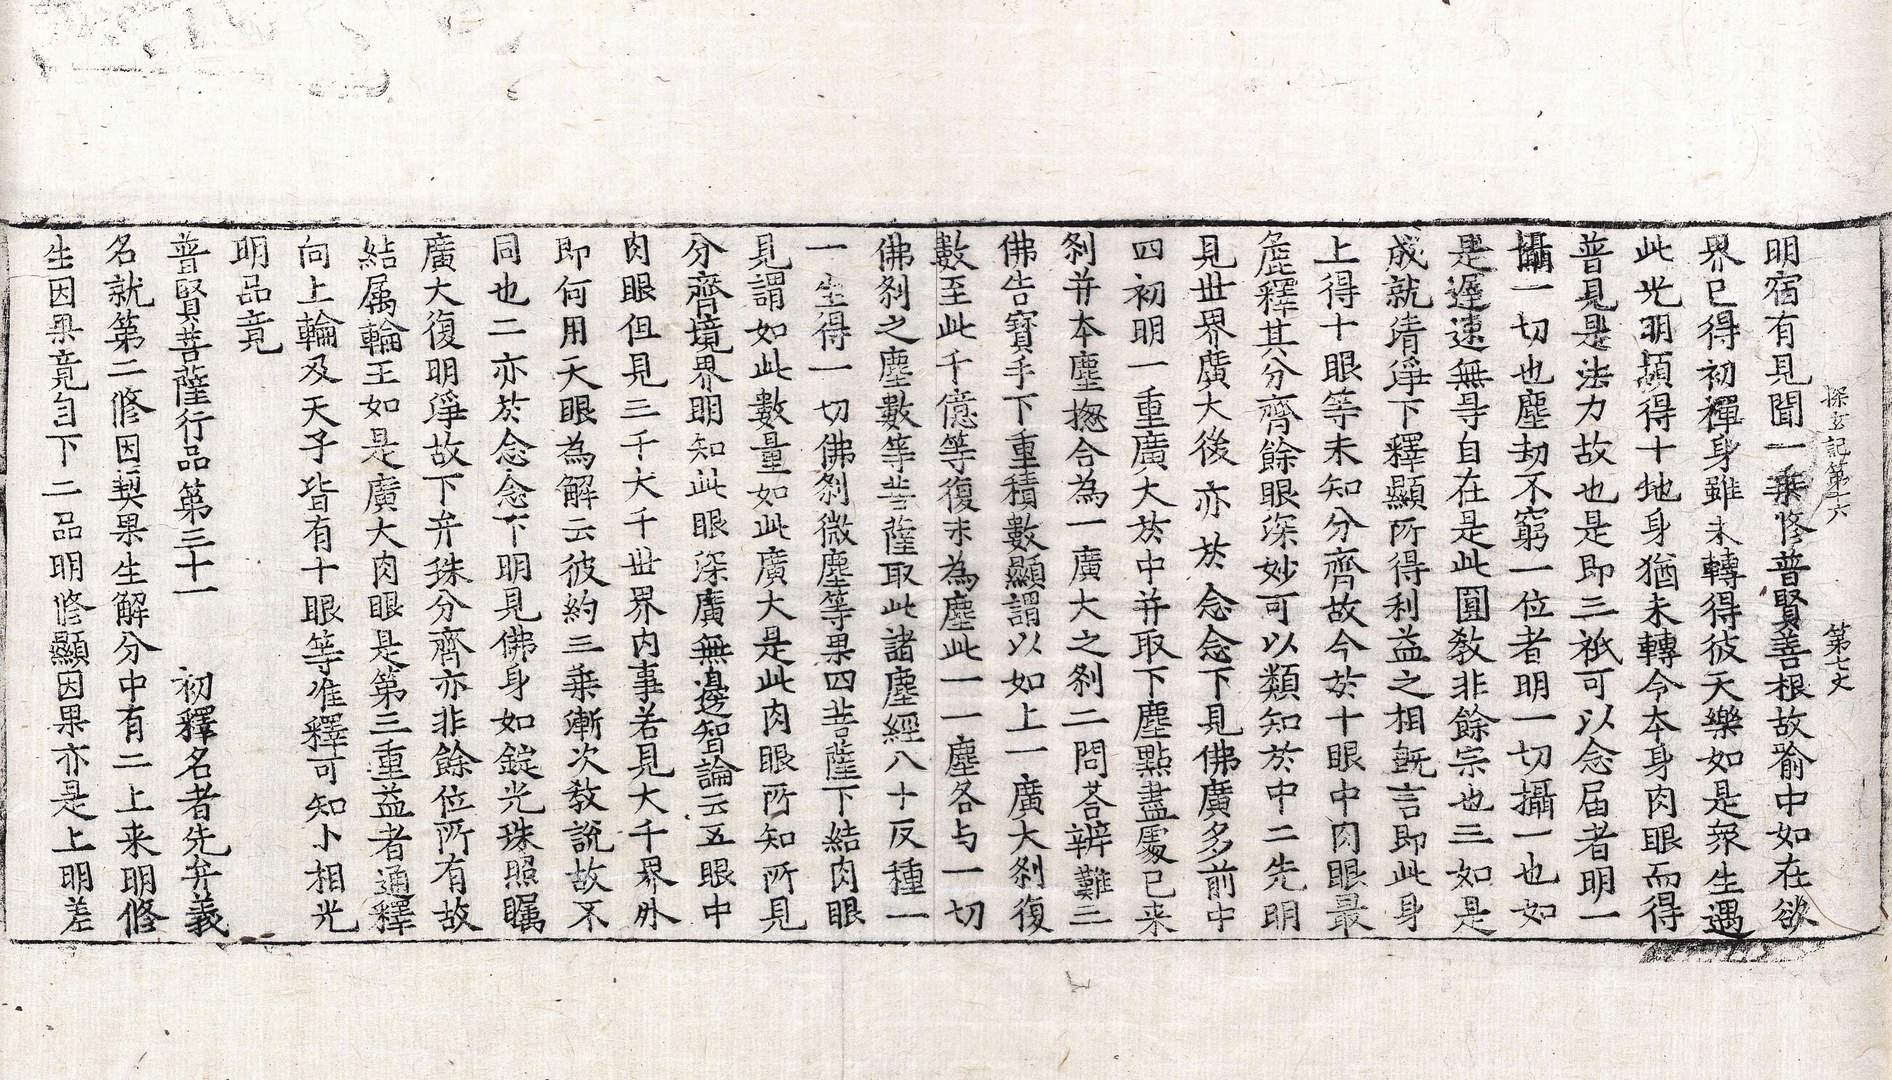 探玄記第十六 第七丈
明宿有見聞一乘修普賢善根故喻中如在欲
界已得初禪身雖未轉得彼天樂如是衆生遇
此光明頓得十地身猶未轉令本身肉眼而得
普見是法力故也是即三祇可以念届者明一
攝一切也塵劫不窮一位者明一切攝一也如
是遲速無导自在是此圓教非餘宗也三如是
成就清淨下釋顯所得利益之相既言即此身
上得十眼等未知分齊故今於十眼中肉眼最
麁釋其分齊餘眼深妙可以類知於中二先明
見世界廣大後亦於念念下見佛廣多前中
四初明一重廣大於中并取下塵點盡處已来
刹并本塵揔合為一廣大之刹二問荅辨難三
佛告寶手下重積數顯謂以如上一廣大刹復
數至此千億等復末為塵此一一塵各与一切
佛刹之塵數等菩薩取此諸塵經八十反種一
一生得一切佛刹微塵等果四菩薩下結肉眼
見謂如此數量如此廣大是此肉眼所知所見
分齊境界明知此眼深廣無邊智論云五眼中
肉眼但見三千大千世界内事若見大千界外
即何用天眼為解云彼約三乘漸次教說故不
同也二亦於念念下明見佛身如錠光珠照矚
廣大復明淨故下弁珠分齊亦非餘位所有故
結属輪王如是廣大肉眼是第三重益者通釋
向上輪及天子皆有十眼等准釋可知小相光
明品竟
普賢菩薩行品第三十一 初釋名者先弁義
名就第二修因契果生解分中有二上来明修
生因果竟自下二品明修顯因果亦是上明差